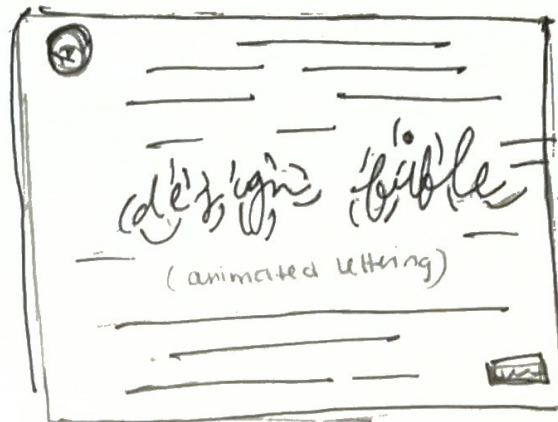 design bible
(animated lettering)